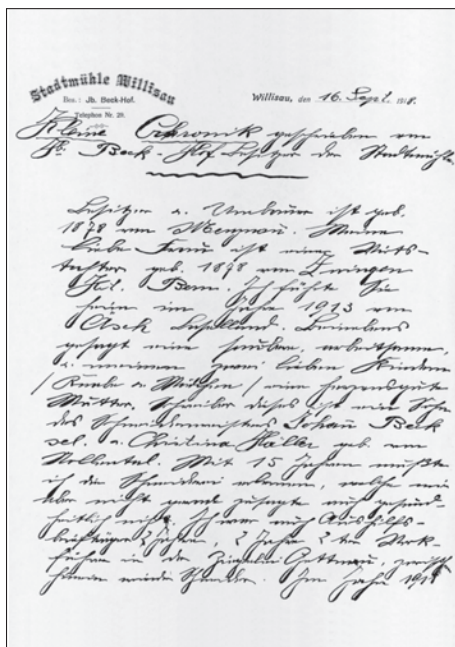 Stadtmühle Willisau
Bes.: Jb. Beck-Hof.
Telephon Nr. 29.
Willisau, den 16. Sept. 1918.
Kleine Chronik geschrieben von
Jb. Beck-Hof Besitzer der Stadtmühle.
Besitzer u. Umbauer ist geb.
1878 von Menznau. Meine
liebe Frau ist eine Wirts-
tochter geb. 1898 von Zwingen
Kt. Bern. Ich führte Sie
heim im Jahre 1913 von
Äsch Baselland. Beinebens
gesagt eine saubere, arbeitsame,
u. meinen zwei lieben Kindern
/ Knabe u. Mädchen / eine herzensgute
Mutter. Schreiber dieses ist ein Sohn
des Schmiedemeisters Johann Beck
sel. u. Christina Häller geb. von
Mit 15 Jahren mußte
ich die Schmiederei erlernen, welche mir
aber nicht zusagte auch gesund-
heitlich nicht. Ich war auch Aushilfs-
briefträger 2 Jahre, 2 Jahre 2ter Werk-
führer in der Ziegelei Gettnau,
wieder Im Jahre 1911